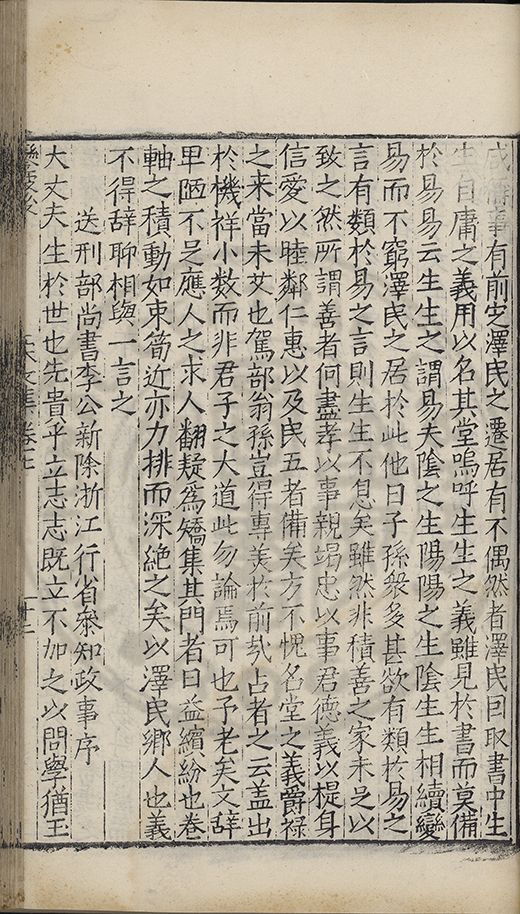 成備事有前定澤民之遷居有不偶然者澤民囙取書中生
生自庸之義用以名其堂嗚呼生生之義雖見於書而莫備
於易易云生生之謂易夫陰之生陽陽之生陰生生相續變
易而不窮澤民之居於此他日子孫衆多甚欲有類於易之
言有類於易之言則生生不息矣雖然非積善之家未足以
致之然所謂善者何盡孝以事親竭忠以事君德義以褆身
信愛以睦鄰仁惠以及民五者備矣方不愧名堂之義爵禄
之来當未艾也駕部翁孫豈得專羙於前㢤占者之云盖出
於機祥小数而非君子之大道此勿論焉可也予老矣文辞
卑陋不足應人之求人翻疑為矯集其門者日益繽紛也卷
軸之積動如束笥近亦力排而深絶之矣以澤民鄉人也義
不得辞聊相與一言之
送刑部尚書李公新除浙江行省叅知政事序
大丈夫生於世也先貴乎立志志既立不加之以問學猶玉
文集卷七
十三